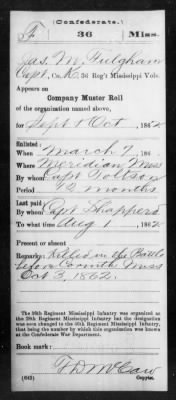 (Confederate.)
F 36 Miss.
Jas. M. Fulgham
Capt, Co. K, 36 Reg't Mississippi Vols.
Appears on
Company Muster Roll
of the organization named above,
for Sept & Oct, 1862.
Enlisted:
When March 7, 186
Where Meridian, Miss
By whom Capt
Period 12 months
Last paid:
By whom Capt Shappers
To what time Aug 1, 1862.
Present or absent
Remarks: Killed in the Battle
before Corinth Miss
Oct 3, 1862.
The 36th Regiment Mississippi Infantry was organized as
the
being the number by which this organization was known
at the Confederate War Department.
Book mark:
F D McCaw
(642) Copyist.